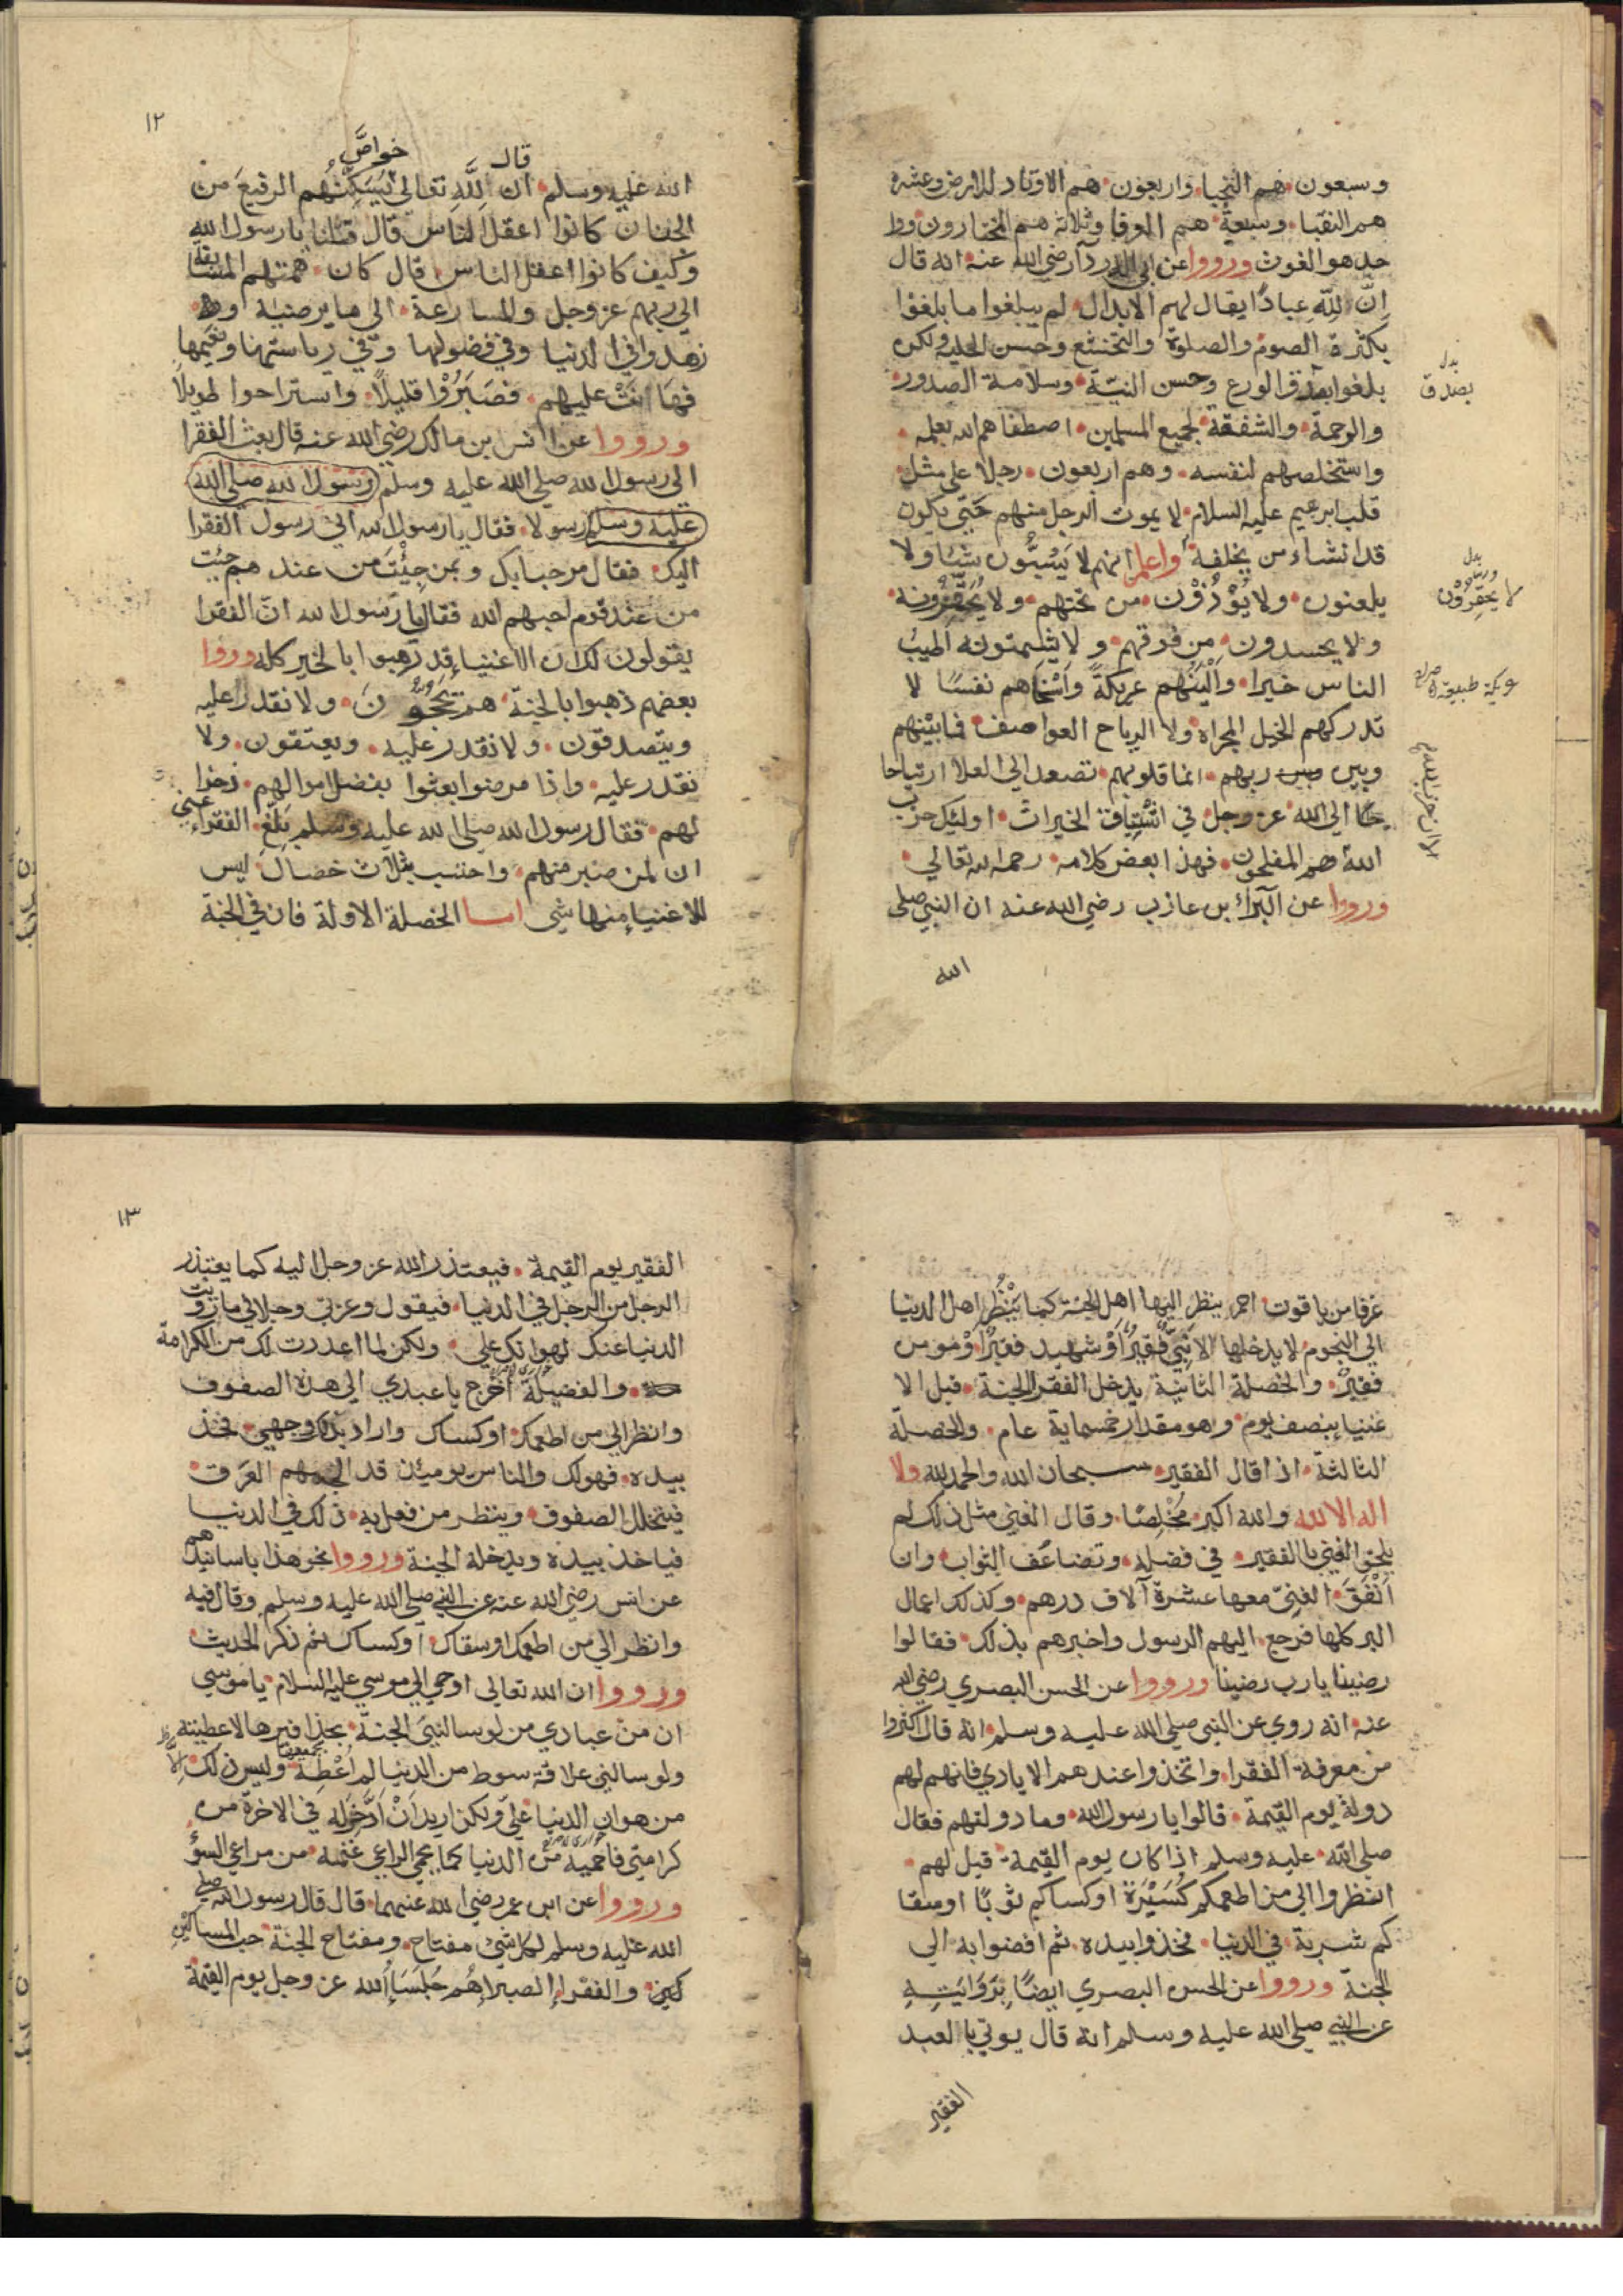 وسبعون هم النجبا واربعون هم الاوتاد للارض وعشرة
هم النقبا وسبعة هم العرفا وثلاثة هم المختارون ووا
حد هو الغوث ورووا عن ابي الدردآ رضي الله عنه انه قال
اِنَّ لِلّهِ عبادًا يقال لهم الابدال لم يبلغوا ما بلغوا
بكثرة الصوم والصلوة والتخشع وحسن الحلية ولكن
بلغوا بصدق الورع وحسن النيّة وسلامة الصدور
بدل
بصدق
والرحمة والشفقة لجميع المسلمين اصطفاهم الله بعلمه
واستخلصهم لنفسه وهم اربعون رجلا على مثل
قلب ابرهيم عليه السلام لا يموت الرجل منهم حَتّي يكون
قد انشاء من يخلفه واعلم انهم لا يَسُبُّون شيئا ولا
يلعنون ولا يُؤْذُوْن من تحتهم ولا يُحَقِّرُونه
بدل
لا يحقِرُوْن
ولا يحسدون من فوقهم ولا
الناس خيرا وَاَلْيَنُهُم عريكةً وَاَسْخَاهم نفسًا لا
عريكة طبيعة
تدركهم الخيل المجراة ولا الرياح العواصف فيما بينهم
وبين ربهم انما قلوبهم تصعد الي العلا ارتياحا
الي الله عز وجل في اشْتِياق الخيرات اوليك حزب
الا ان حزب الله هم
اللهِ هم المفلحون فهذا بعض كلامه رحمه الله تعالي
ورووا عن البَرآء بن عازب رضي الله عنه ان النبي صلى
الله
١٢
قال
خواصَّ
الله عليه وسلم ان لِلَّهِ تعالى يُسَكِّنُهُم الرفيعَ من
الجنان كانوا اعقل الناس قال قلنا يا رسول الله
وكيف كانوا اعقل الناس قال كان همتهم المسابقة
الي ربهم عز وجل والمسارعة الى ما يرضيه و
زهدوا في الدنيا وفي فضولها وفي رياستها ونعيمها
فهَانَتْ عليهم فَصَبَرُوْا قليلاً واستراحوا طويلاً
ورووا عن انس بن مالك رضي الله عنه قال بعث الفقرا
الى رسول الله صلي الله عليه وسلم رسول الله صلي الله
عليه وسلم رسولا فقال يا رسول الله اني رسول الفقرا
اليك فقال مرحبا بك وبمن جِئْتَ من عندهم جئت
من عند قوم احبهم الله فقال يا رسول الله انّ الفقرا
يقولون لك ان الاغنياء قد ذهبوا بالخير كله ورووا
بعضهم ذهبوا بالجنة هم يَحُجُّونَ ولا نقدر عليه
ويتصدقون ولا نقدر عليه ويعتقون ولا
نقدر عليه واذا مرضوا بعثوا بفضل اموالهم ذخرا
لهم فقال رسول الله صلى الله عليه وسلم بَلّغ الفقراء عني
ان لمن صبر منهم واحتسب ثلاث خصال ليس
للاغنياء منها شي اما الخصلة الاولة فان في الجنة
غرفا من ياقوت احمر ينظر اليها اهل الجنة كما يَنْظُر اهل الدنيا
الي النجوم لا يدخلها الا نَبِيٌّ فقيرٌ اَوْ شهيد فقيرٌ اَوْ مومن
فقيرٌ والخصلة الثانية يدخل الفقرا الجنة قبل الا
غنيا بنصف يوم وهو مقدار خمسماية عام والخصلة
الثالثة اذا قال الفقير سبحان الله والحمد لله ولا
اله الا الله والله اكبر مخْلِصًا وقال الغني مثل ذلك لم
يلحق الغني بالفقير في فضله وتضاعُف الثواب وان
اَنْفَقَ الغنِيّ معها عشرة آلاف درهم وكذلك اعمال
البر كلها فرجع اليهم الرسول واخبرهم بذلك فقالوا
رضينا يا رب رضينا ورووا عن الحسن البصري رضي الله
عنه انه روي عن النبي صلى الله عليه وسلم انه قال اكثروا
من معرفة الفقرا واتخذوا عندهم الايادي فانهم لهم
دولة يوم القيمة قالوا يا رسول الله وما دولتهم فقال
صلى الله عليه وسلم اذا كان يوم القيمة قيل لهم
انظروا الي من اطعمكم كُسَيْرَة او كساكم ثوبًا او سقا
كم شربة في الدنيا فخذوا بيده ثم افضوا به الي
الجنة ورووا عن الحسن البصري ايضًا بِرَوَايَتِهِ
عن النبي صلى الله عليه وسلم انه قال يوتي بالعبد
الفقير
١٣
الفقير يوم القيمة فيعتذر الله عز وجل اليه كما يعتذر
الرجل من الرجل في الدنيا فيقول وعزتي وجلالي ما زويت
الدنيا عنك لهوانك علي ولكن لما اعددت لك من الكرامة
والفضيلة اخرج يا عبدي الي هذه الصفوف
وانظر الي من اطعمك او كساك واراد بذلك وجهي فخذ
بيده فهو لك والناس يومئذ قد الجمهم العَرَق
فيتخلل الصفوف وينظر من فعل به ذلك في الدنيا
فياخذ بيده ويدخله الجنة ورووا نحو هذا باسانيدهم
عن انس رضي الله عنه عن النبي صلى الله عليه وسلم وقال فيه
وانظر الي من اطعمك او سقاك او كساك ثم ذكر الحديث
ورووا ان الله تعالى اوحي الي موسي عليه السلام يا موسي
ان من عبادي من لو سالني الجنة بحذافيرها لاعطيته
بجميعها
ولو سالني علاقة سوط من الدنيا لم اُعْطِهْ وليس ذلك
من هوان الدنيا عليّ ولكن اريد اَنْ اَدَّخِرَ له في الاخرة من
كرامتي فاحميه من الدنيا كما يحمي الراعي غنمه من مراعي السوءِ
ورووا عن ابن عمر رضي الله عنهما قال قال رسول الله صلى
الله عليه وسلم لكل شيْ مفتاح ومفتاح الجنة حب المساكين
والفقراء الصبراء هُم جُلَسَاءُ الله عز وجل يوم القيمة